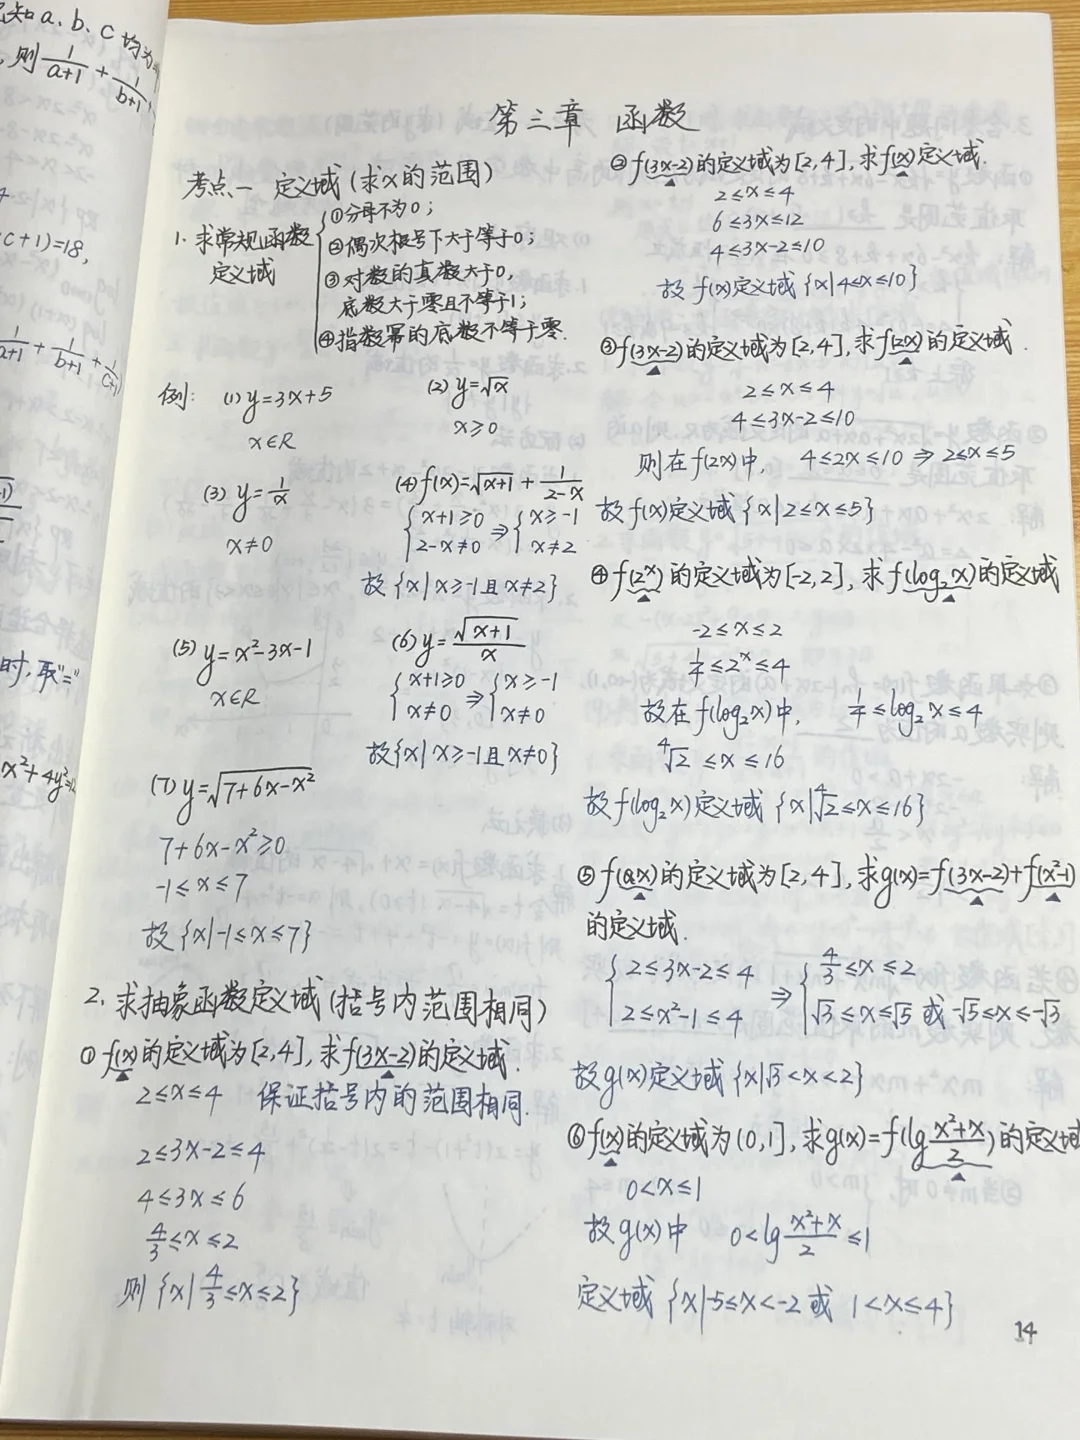 第三章 函数
考点一 定义域(求x的范围)
1. 求常规函数定义域
①分母不为0;
②偶次根号下大于等于0;
③对数的真数大于0,
底数大于零且不等于1;
④指数幂的底数不等于零.
例: (1) y=3x+5
x∈R
(2) y=√x
x≥0
(3) y=1/x
x≠0
(4) f(x)=√(x+1) + 1/(2-x)
{x+1≥0 2-x≠0 ⇒ {x≥-1 x≠2
故{x|x≥-1且x≠2}
(5) y=x²-3x-1
x∈R
(6) y=√(x+1)/x
{x+1≥0 x≠0 ⇒ {x≥-1 x≠0
故{x|x≥-1且x≠0}
(7) y=√(7+6x-x²)
7+6x-x²≥0
-1≤x≤7
故{x|-1≤x≤7}
2. 求抽象函数定义域(括号内范围相同)
① f(x)的定义域为[2,4],求f(3x-2)的定义域.
2≤x≤4 保证括号内的范围相同.
2≤3x-2≤4
4≤3x≤6
4/3≤x≤2
则{x|4/3≤x≤2}
② f(3x-2)的定义域为[2,4],求f(x)定义域.
2≤x≤4
6≤3x≤12
4≤3x-2≤10
故f(x)定义域{x|4≤x≤10}
③ f(3x-2)的定义域为[2,4],求f(2x)的定义域.
2≤x≤4
4≤3x-2≤10
则在f(2x)中, 4≤2x≤10 ⇒ 2≤x≤5
故f(x)定义域{x|2≤x≤5}
④ f(2ˣ)的定义域为[-2,2],求f(log₂x)的定义域
-2≤x≤2
1/4≤2ˣ≤4
故在f(log₂x)中, 1/4≤log₂x≤4
⁴√2≤x≤16
故f(log₂x)定义域{x|⁴√2≤x≤16}
⑤ f(x)的定义域为[2,4],求g(x)=f(3x-2)+f(x²-1)
的定义域.
{2≤3x-2≤4 2≤x²-1≤4 ⇒ {4/3≤x≤2 √3≤x≤√5或-√5≤x≤-√3
故g(x)定义域{x|√3<x<2}
⑥ f(x)的定义域为(0,1],求g(x)=f(lg (x²+x)/2)的定义域
0<x≤1
故g(x)中 0<lg (x²+x)/2≤1
定义域{x|-5≤x<-2或1<x≤4}
14
知a、b、c均为
则1/(a+1)+1/(b+1)
c+1)=18,
1/(a+1)+1/(b+1)+1/(c+1)
时,取"="
x²+4y²